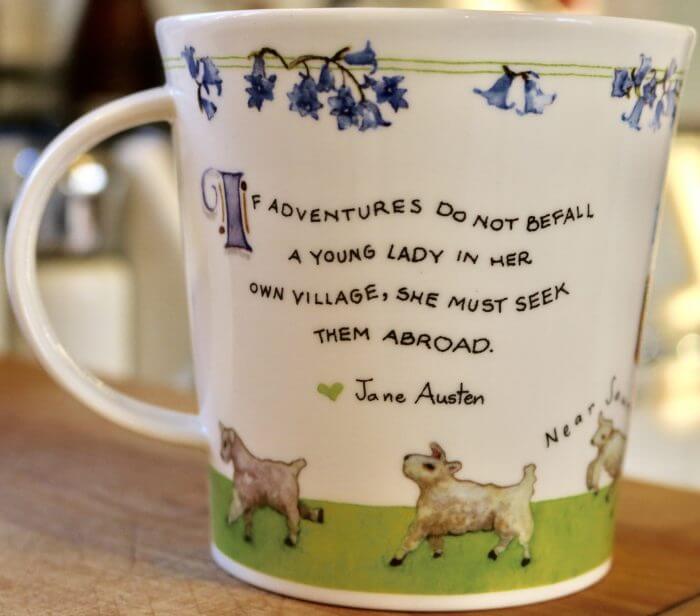 IF ADVENTURES DO NOT BEFALL
A YOUNG LADY IN HER
OWN VILLAGE, SHE MUST SEEK
THEM ABROAD.
Jane Austen
Near